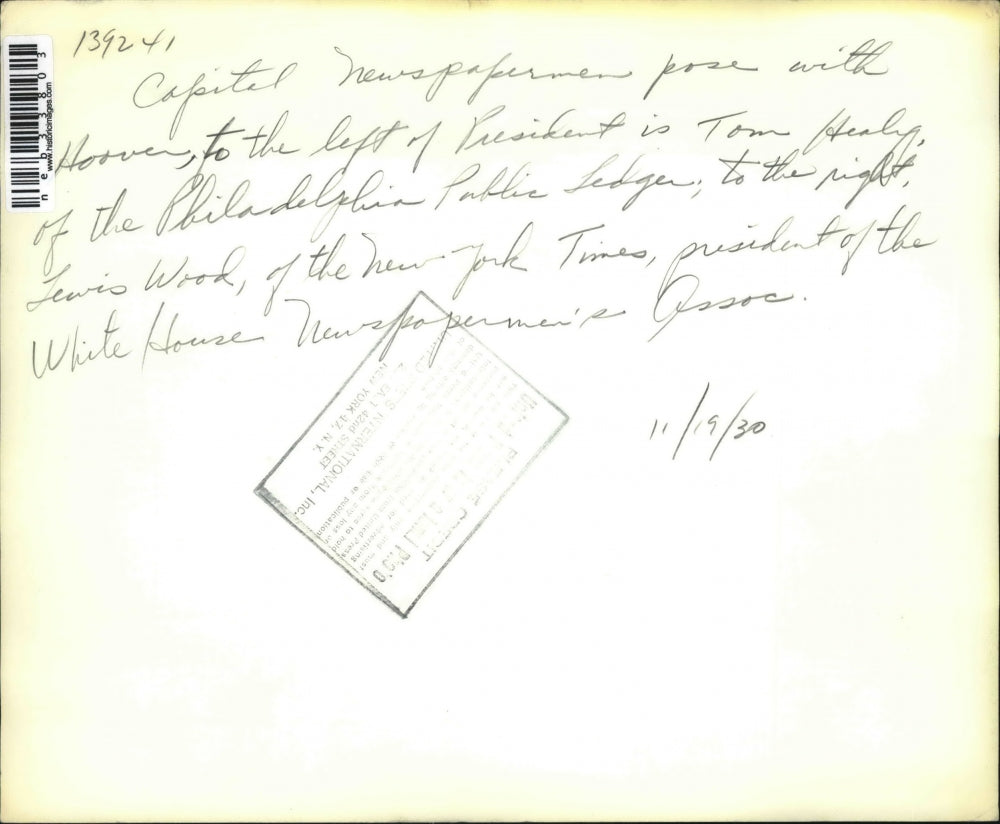 139241
Capital Newspapermen pose with
Hoover, to the left of President is Tom Healy,
of the Philadelphia Public Ledger; to the right,
Lewis Wood, of the New York Times, president of the
White House Newspapermen's Assoc.
11/19/30
www.historicimages.com
PLEASE CREDIT
INTERNATIONAL, Inc.
42nd STREET
NEW YORK 17, N. Y.